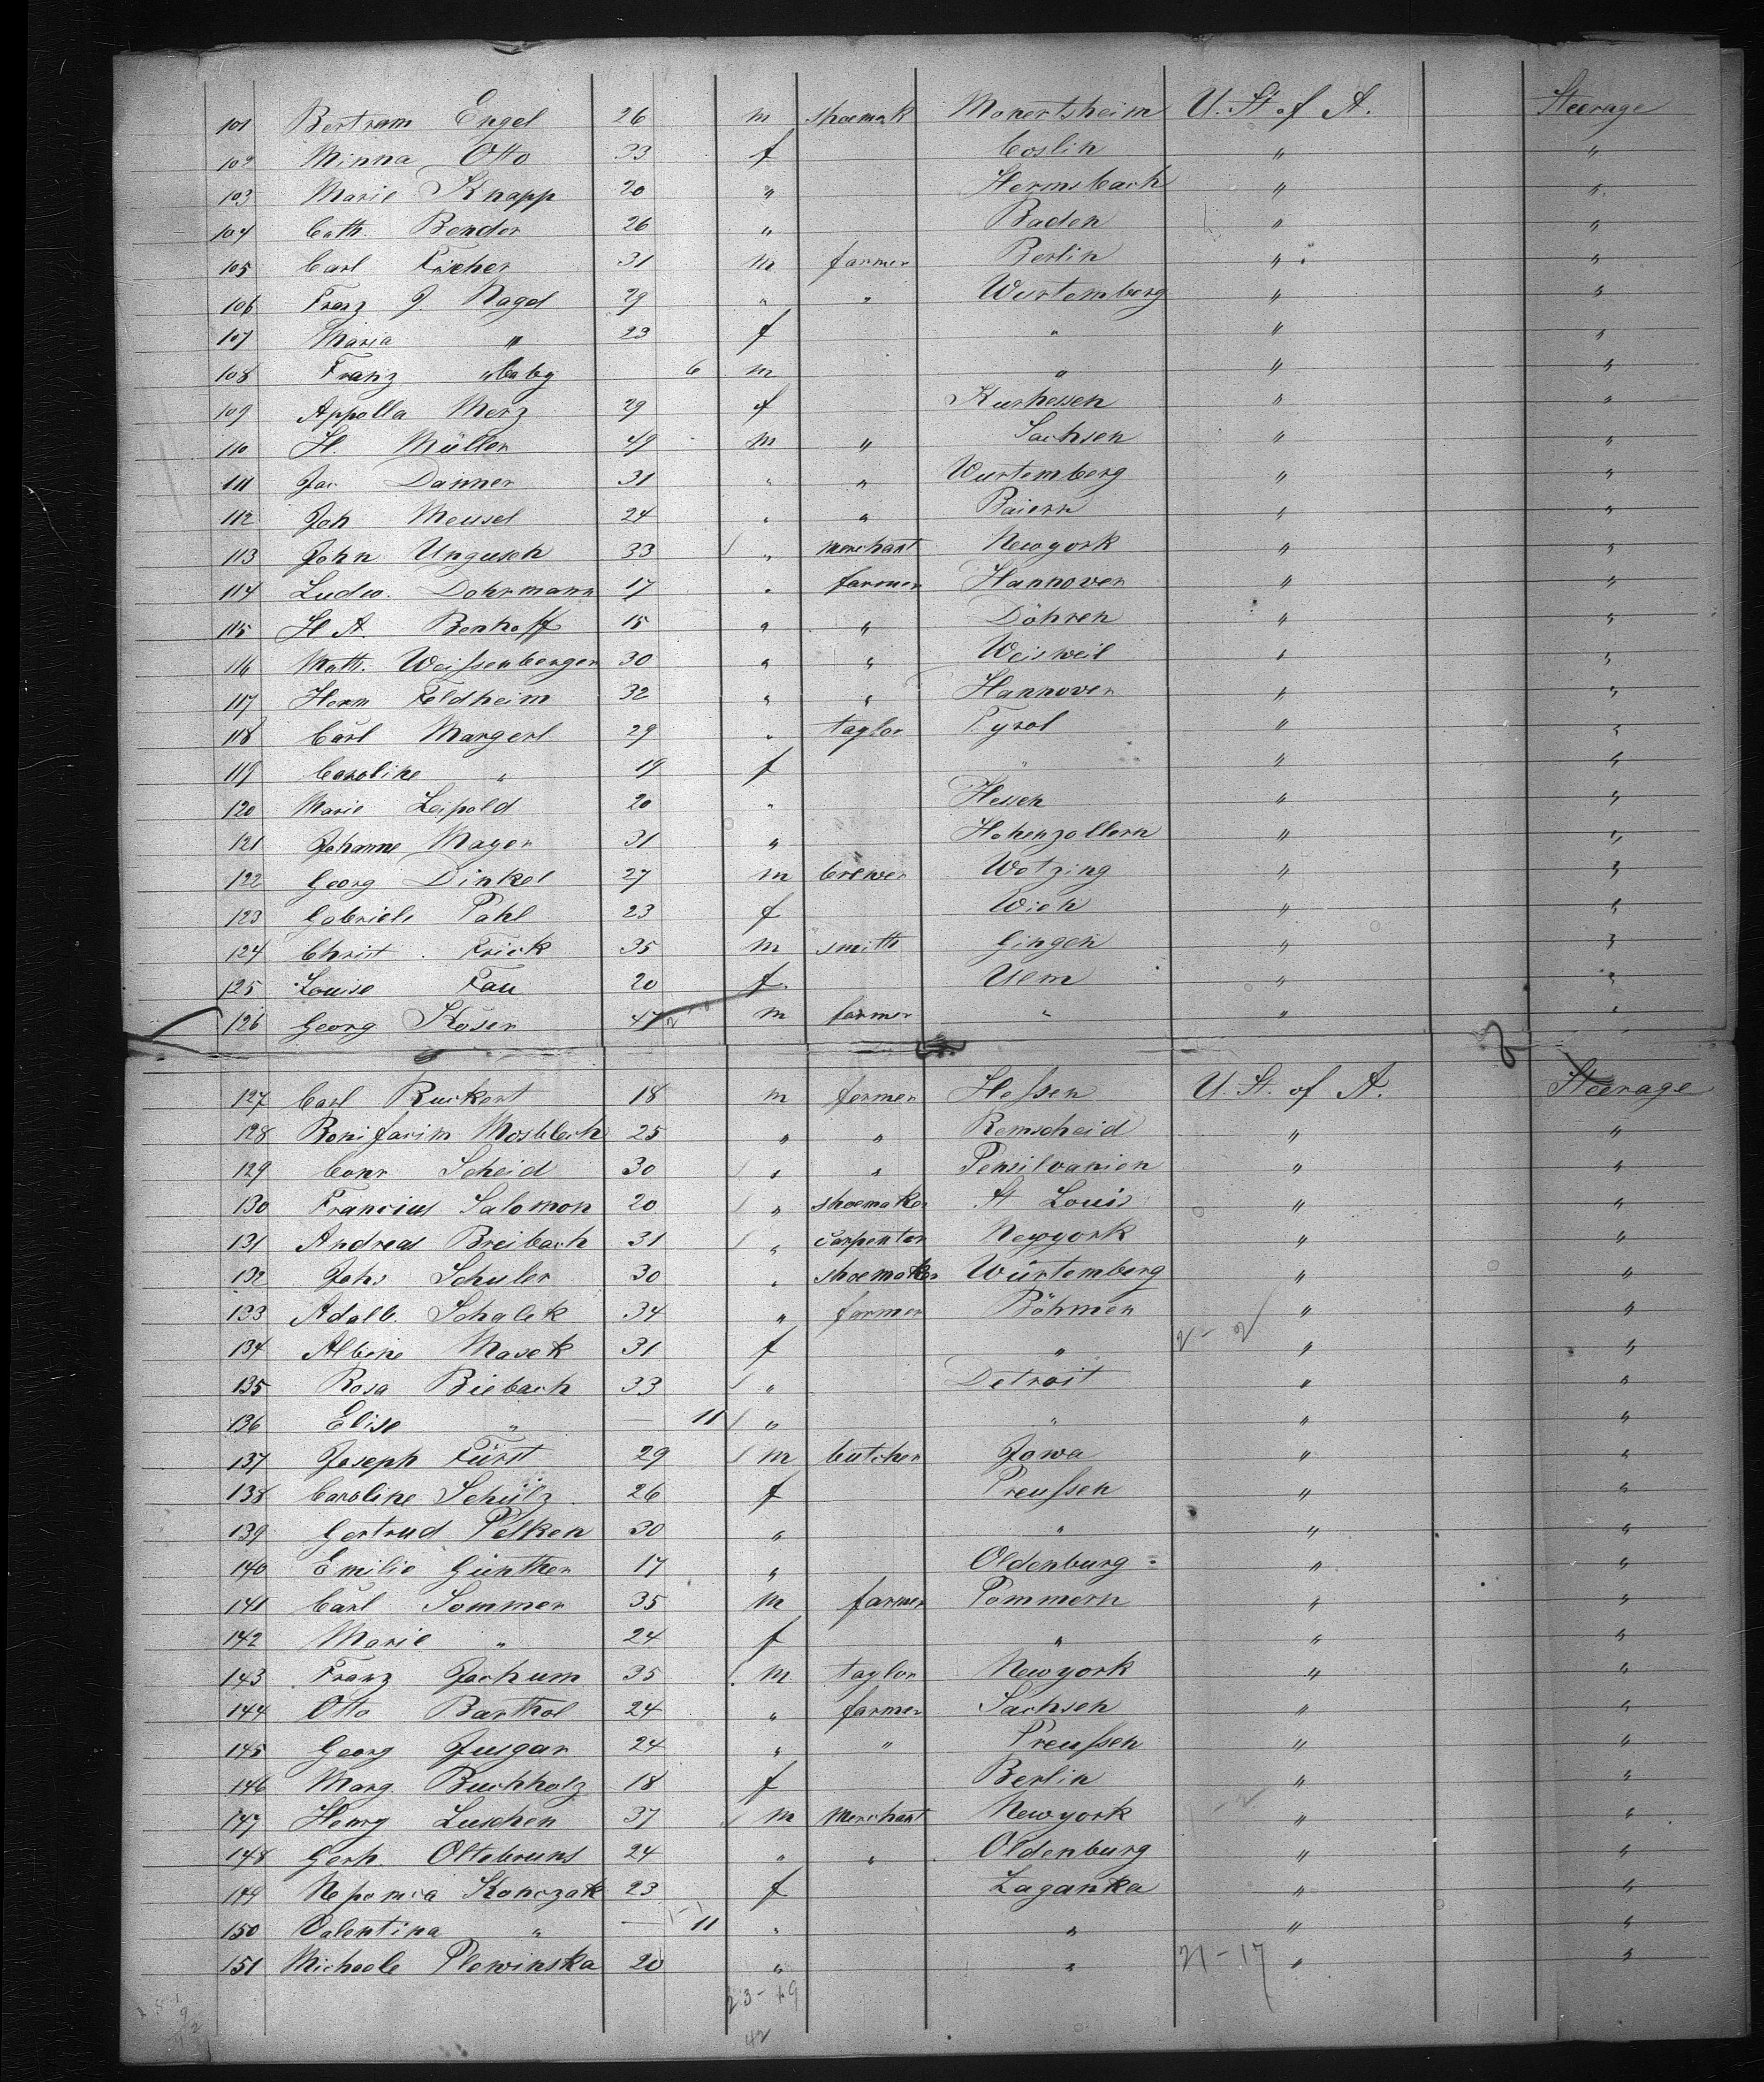 101 Bertram Engel 26 m shoemak Monertsheim U. St. of A. Steerage
102 Minna Otto 33 f Coslin " "
103 Marie Knapp 20 " Hermsbach " "
104 Cath. Bender 26 " Baden " "
105 Carl Fischer 31 m farmer Berlin " "
106 Franz J. Nagel 29 " " Wurtemberg " "
107 Maria " 23 f " " "
108 Franz " baby 6 m " " "
109 Appolla Merz 29 f Kurhessen " "
110 H. Müller 49 m " Sachsen " "
111 Jac Danner 31 " " Wurtemberg " "
112 Joh Meusel 24 " " Baiern " "
113 John Ungusch 33 " merchant Newyork " "
114 Ludw. Dohrmann 17 " farmer Hannover " "
115 H. A. Benhoff 15 " " Döhren " "
116 Math. Weissenberger 30 " " Weisweil " "
117 Herm Feldheim 32 " " Hannover " "
118 Carl Margerl 29 " taylor Tyrol " "
119 Caroline " 19 f " " "
120 Marie Leipold 20 " Hessen " "
121 Johanne Mayer 31 " Hohenzollern " "
122 Georg Dinkel 27 m brewer Wotzing " "
123 Gabriele Pahl 23 f Wien " "
124 Christ. Frick 35 m smith Gingen " "
125 Louise Fau 20 f Ulm " "
126 Georg Koser 47 m farmer " " "
127 Carl Ruckert 18 m farmer Hessen U. St. of A. Steerage
128 Mosblech 25 " " Remscheid " "
129 Conr Scheid 30 " " Pensilvanien " "
130 Francius Salomon 20 " shoemaker St Louis " "
131 Andreas Breibach 31 " carpenter Newyork " "
132 Johs Schuler 30 " shoemaker Würtemberg " "
133 Adalb. Schalek 34 " farmer Böhmen " "
134 Albine Masek 31 f " " "
135 Rosa Biebach 33 " Detroit " "
136 Elise " — 11 " " " "
137 Joseph Fürst 29 m butcher Jowa " "
138 Caroline Schülz 26 f Preussen " "
139 Gertrud Pelken 30 " " " "
140 Emilie Günther 17 " Oldenburg " "
141 Carl Sommer 35 m farmer Pommern " "
142 Marie " 24 f " " "
143 Franz Jochum 35 m taylor Newyork " "
144 Otto Barthol 24 " farmer Sachsen " "
145 Georg Jusgar 24 " " Preussen " "
146 Marg Buchholz 18 f Berlin " "
147 Henry Luschen 37 m merchant Newyork " "
148 Gerh. Oltebruns 24 " " Oldenburg " "
149 Nepomca Konczak 23 f Zaganka " "
150 Valentina " — 11 " " " "
151 Michaele Plewinska 20 " " 21-17 " "
23-19
42